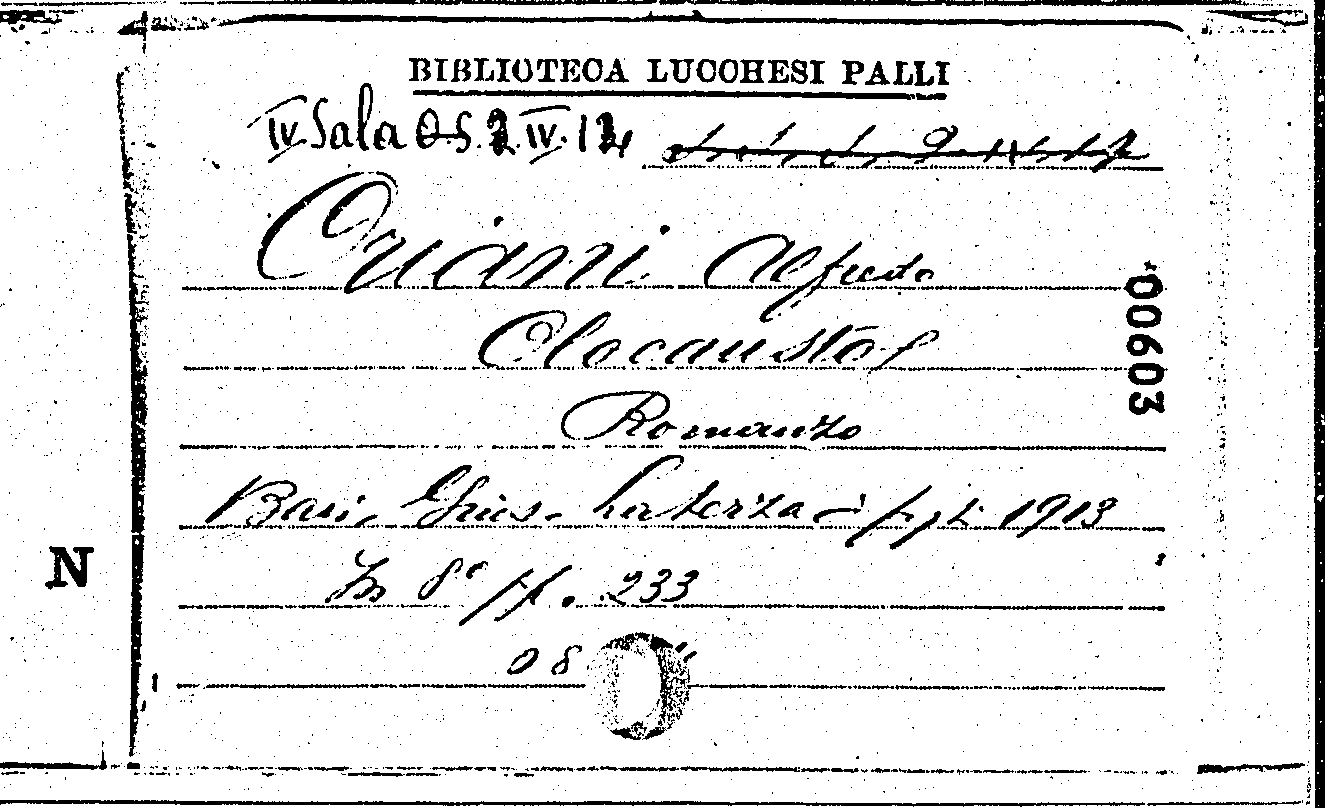 BIBLIOTECA LUCCHESI PALLI
IV Sala O.S. 2. IV. 12
Oriani Alfredo
Olocausto
Romanzo
*00603
Bari, Gius. Laterza e figli 1913
N
In 8° pp. 233
08